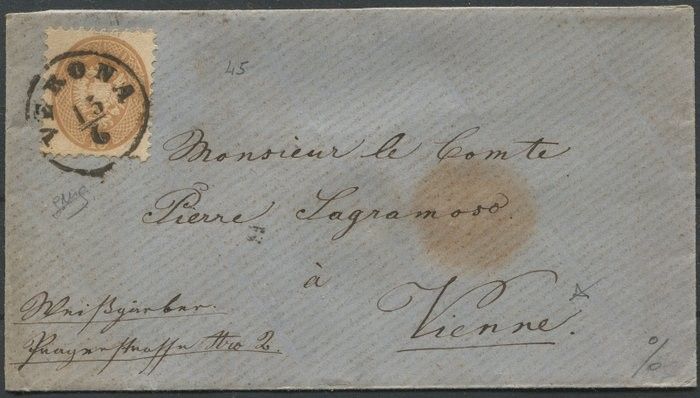 VERONA
15/6
45
Monsieur le Comte
Pierre Sagramoso.
à
Vienne.
Weißgärber.
Pragerstrasse Nro 2.
%